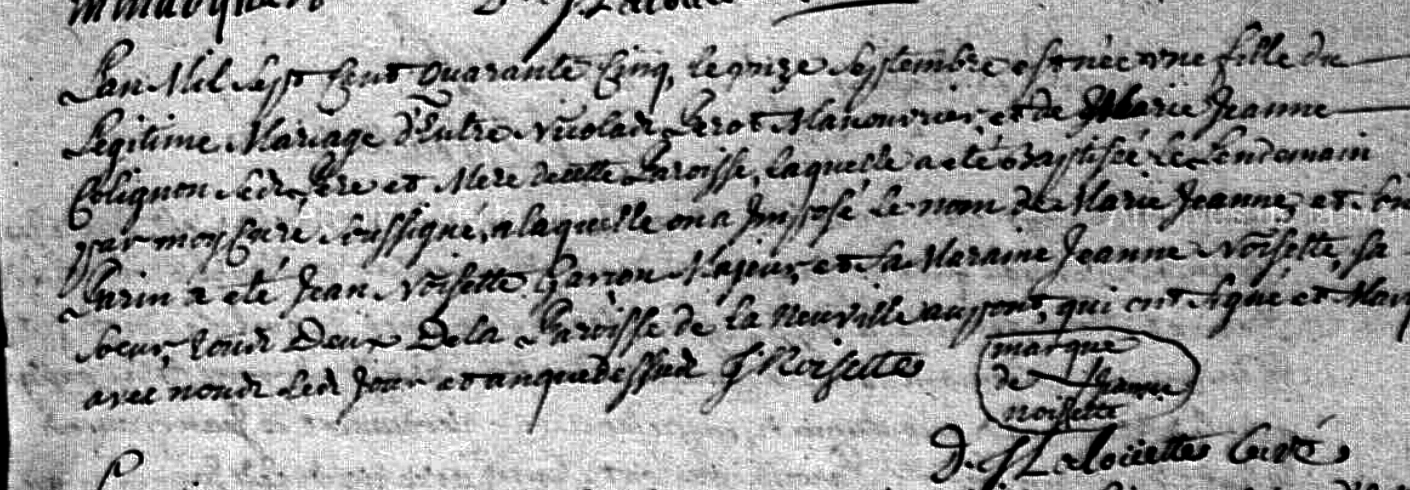 Lan Mil sept Cent quarante Cinq, le onze septembre est née une fille du
Legitime Mariage d'Entre Nicolas Perot Manouvrier, et de Marie Jeanne
Colignon ses Pere et Mere de cette Paroisse, laquelle a été baptisée Le Lendemain
par moy Curé soussigné, a laquelle on a Imposé Le nom de Marie Jeanne, et son
Parin a eté Jean Noisette Garçon Majeur, et sa Maraine Jeanne Noisette, sa
soeur, tous Deux De la Paroisse de la Neuville au pont, qui ont signé et Marq
avec nous Led Jour et an que dessus J Noisette
marque
de Jeanne
noisette
D. J Lalouette Curé